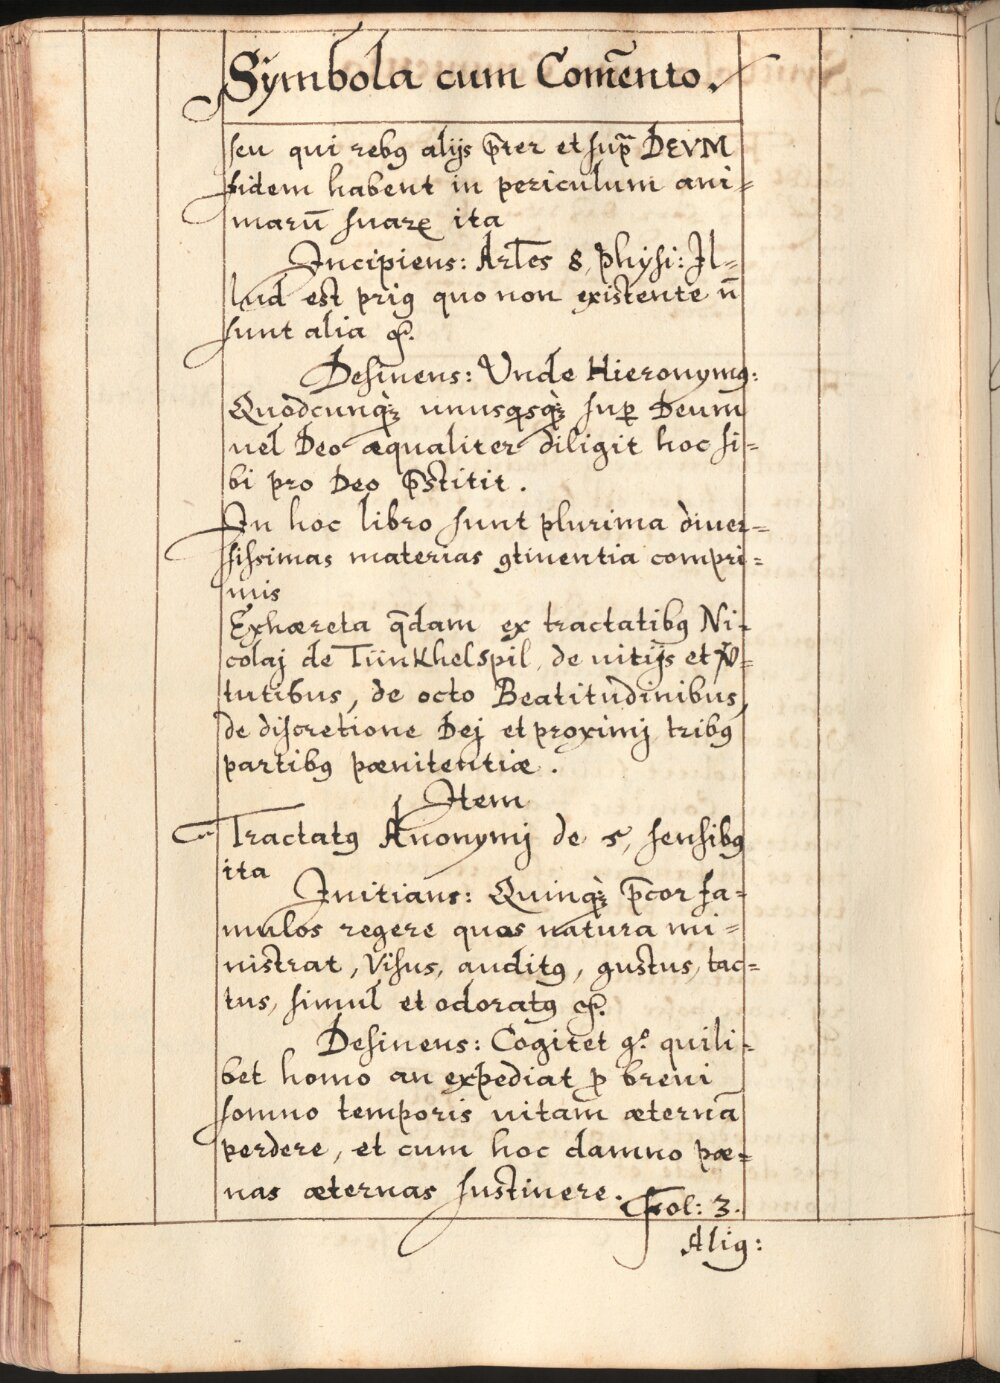 Symbola cum Com̄ento.
seu qui rebꝯ alijs p̄ter et sup̄ DEVM
fidem habent in periculum ani=
marū suarꝝ ita
Incipiens: Ar̄les 8, physi: Il=
lud est priꝯ quo non existente n̄
sunt alia &.
Desinens: Unde Hieronymꝯ:
Quodcunqꝫ unusqisqꝫ sup̱ Deum
uel Deo æqualiter diligit hoc si=
bi pro Deo p̄stitit.
In hoc libro sunt plurima diuer=
sissimas materias ꝯtinentia compri=
mis
Exhæreta q̄dam ex tractatibꝯ Ni=
colaj de Tünkhelspil, de uitijs et v̄=
tutibus, de octo Beatitudinibus,
de discretione Dej et proximj tribꝯ
partibꝯ pænitentiæ.
Item
Tractatꝯ Anonymj de 5, sensibꝯ
ita
Initians: Quinqꝫ p̄cor fa=
mulos regere quos natura mi=
nistrat, Visus, auditꝯ, gustus, tac=
tus, simul et odoratꝯ &.
Desinens: Cogitet gͦ. quili=
bet homo an expediat ꝓ breui
somno temporis uitam æternā
perdere, et cum hoc damno pæ=
nas æternas sustinere.
Fol: 3.
Aliꝯ: